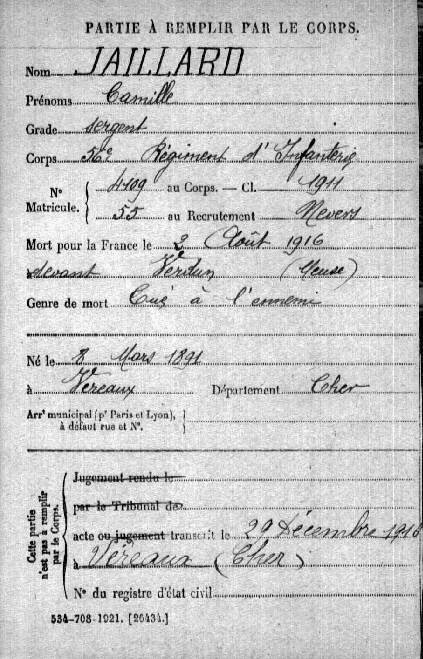 PARTIE À REMPLIR PAR LE CORPS.
Nom JAILLARD
Prénoms Camille
Grade sergent
Corps 56e Régiment d'Infanterie
N° Matricule. { 4109 au Corps. — Cl. 1911
55 au Recrutement Nevers
Mort pour la France le 2 Août 1916
devant Verdun (Meuse)
Genre de mort Tué à l'ennemi
Né le 8 Mars 1891
à Vereaux Département Cher
Arrt municipal (pr Paris et Lyon),
à défaut rue et N°.
Cette partie n'est pas à remplir par le Corps.
Jugement rendu le
par le Tribunal de
acte ou jugement transcrit le 29 Décembre 1916
à Vereaux (Cher)
N° du registre d'état civil
534-708-1921. [26434.]